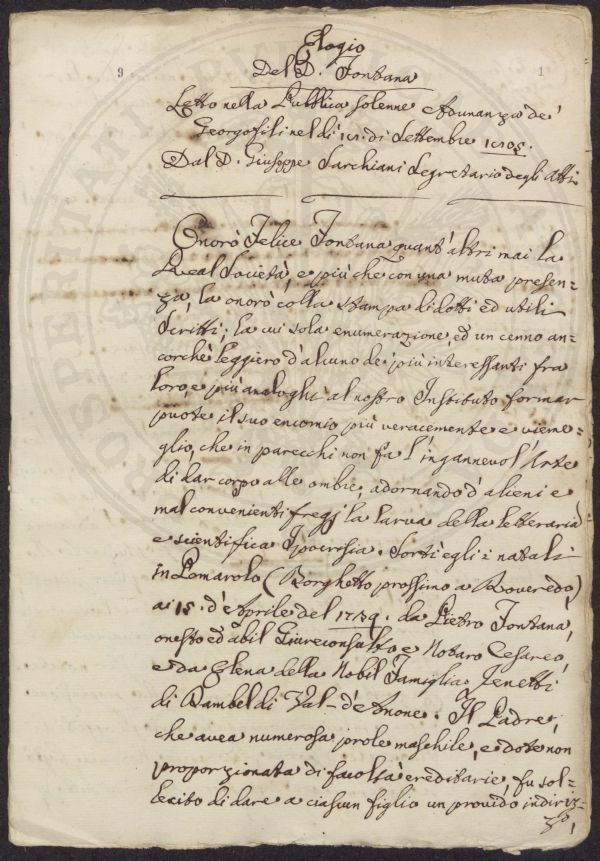 Elogio
9
1
Del D. Fontana
Letto nella Pubblica solenne Adunanza de'
Georgofili nel dì di Settembre
Dal D. Giuseppe Sarchiani Segretario degli Atti
Onorò Felice Fontana quant'altri mai la
Real Società, e più che con una muta presen=
za, la onorò colla stampa di dotti ed utili
Scritti; la cui sola enumerazione, ed un cenno an=
corchè leggiero d'alcuno de' più interessanti fra
loro, e più analoghi al nostro Instituto formar
puote il suo encomio più veracemente e vieme=
glio, che in parecchi non fa l'ingannevol' Arte
di dar corpo alle ombre, adornando d'alieni e
mal convenienti fregj la larva della letteraria
e scientifica Ipocrisia. Sortì egli i natali
in Pomarolo (Borghetto prossimo a Roveredo)
ai 15. d'Aprile del da Pietro Fontana,
onesto ed abil Giureconsulto e Notaro Cesareo,
e da Elena della Nobil Famiglia Jenetti
di Rambel di Val-d'Anone. Il Padre,
che avea numerosa prole maschile, e dote non
proporzionata di facoltà ereditarie, fu sol=
lecito di dare a ciascun figlio un provido indiriz=
zo,